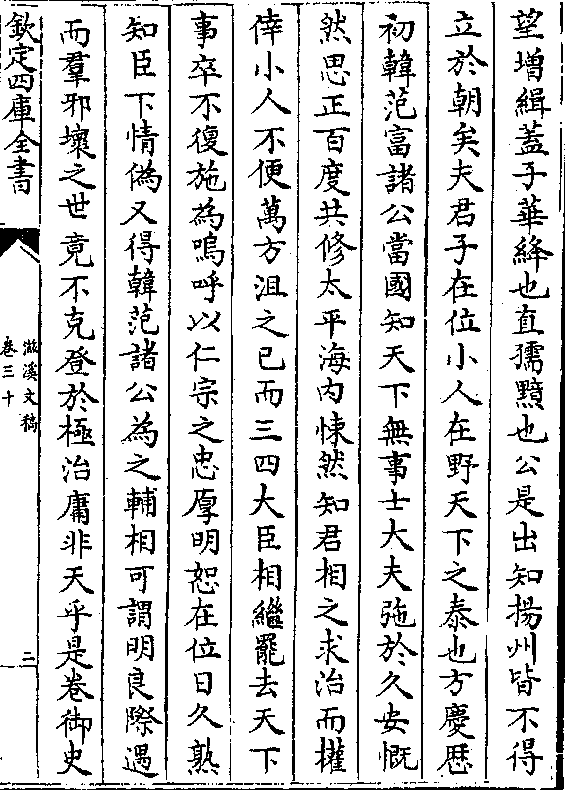 望增緝蓋子華絳也直孺黯也公是出知揚州皆不得
立於朝矣夫君子在位小人在野天下之泰也方慶歴
初韓范富諸公當國知天下無事士大夫弛於久安慨
然思正百度共修太平海内悚然知君相之求治而權
倖小人不便萬方沮之已而三四大臣相繼罷去天下
事卒不復施為嗚呼以仁宗之忠厚明恕在位日久熟
知臣下情偽又得韓范諸公為之輔相可謂明良際遇
而羣邪壞之世竟不克登於極治庸非天乎是卷御史
欽定四庫全書
滋溪文稿
卷三十
二